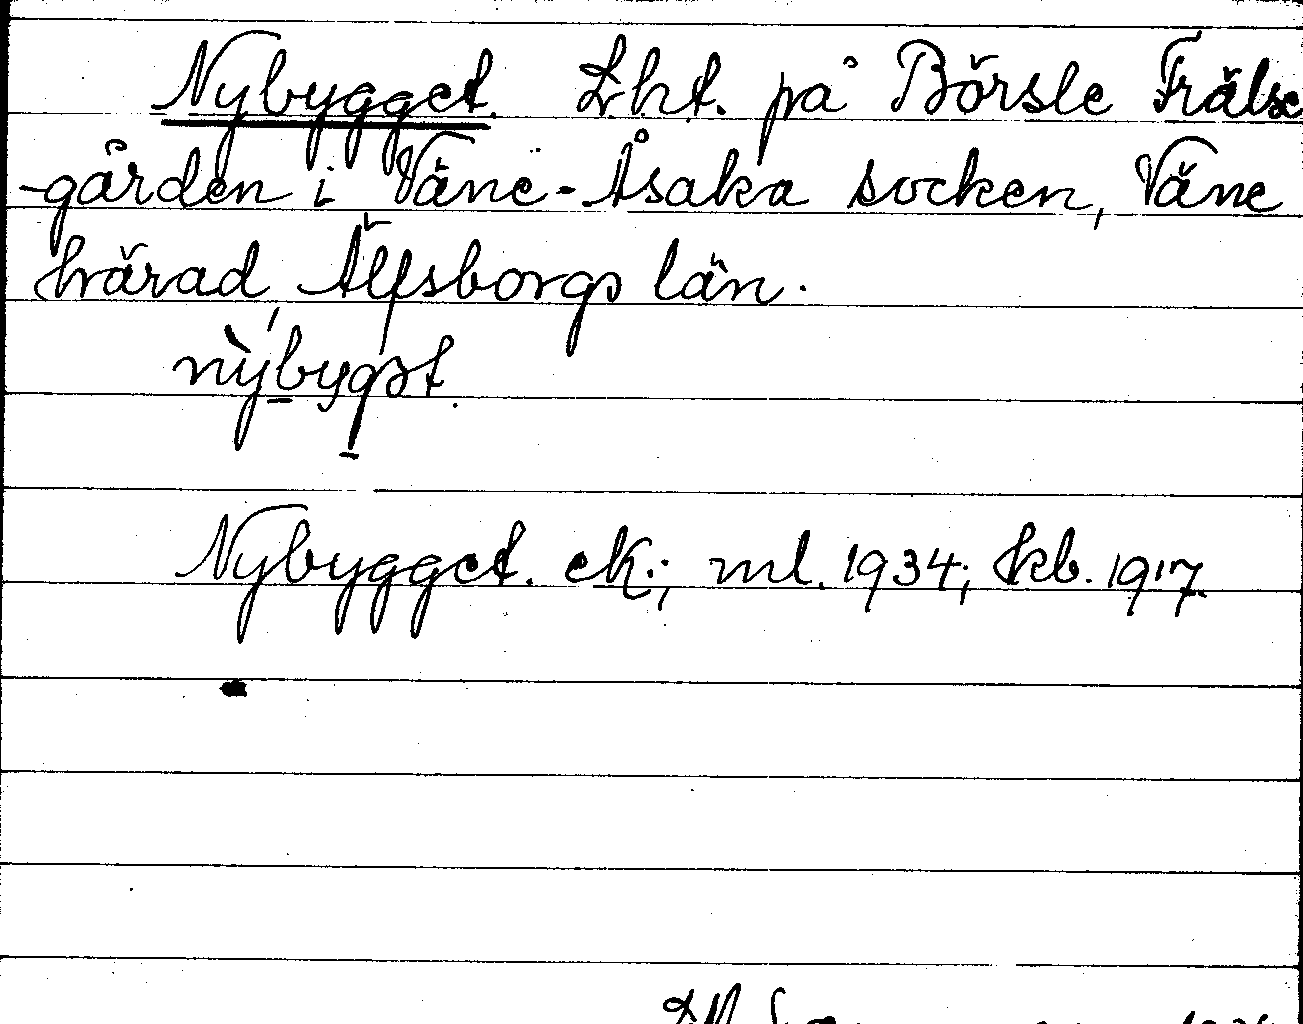 Nybygget. Lht. på Börsle Frälse
-gården i Väne-Åsaka socken, Väne
härad, Älfsborgs län.
nỳbygət.
Nybygget. ek.; ml. 1934; kb. 1917.